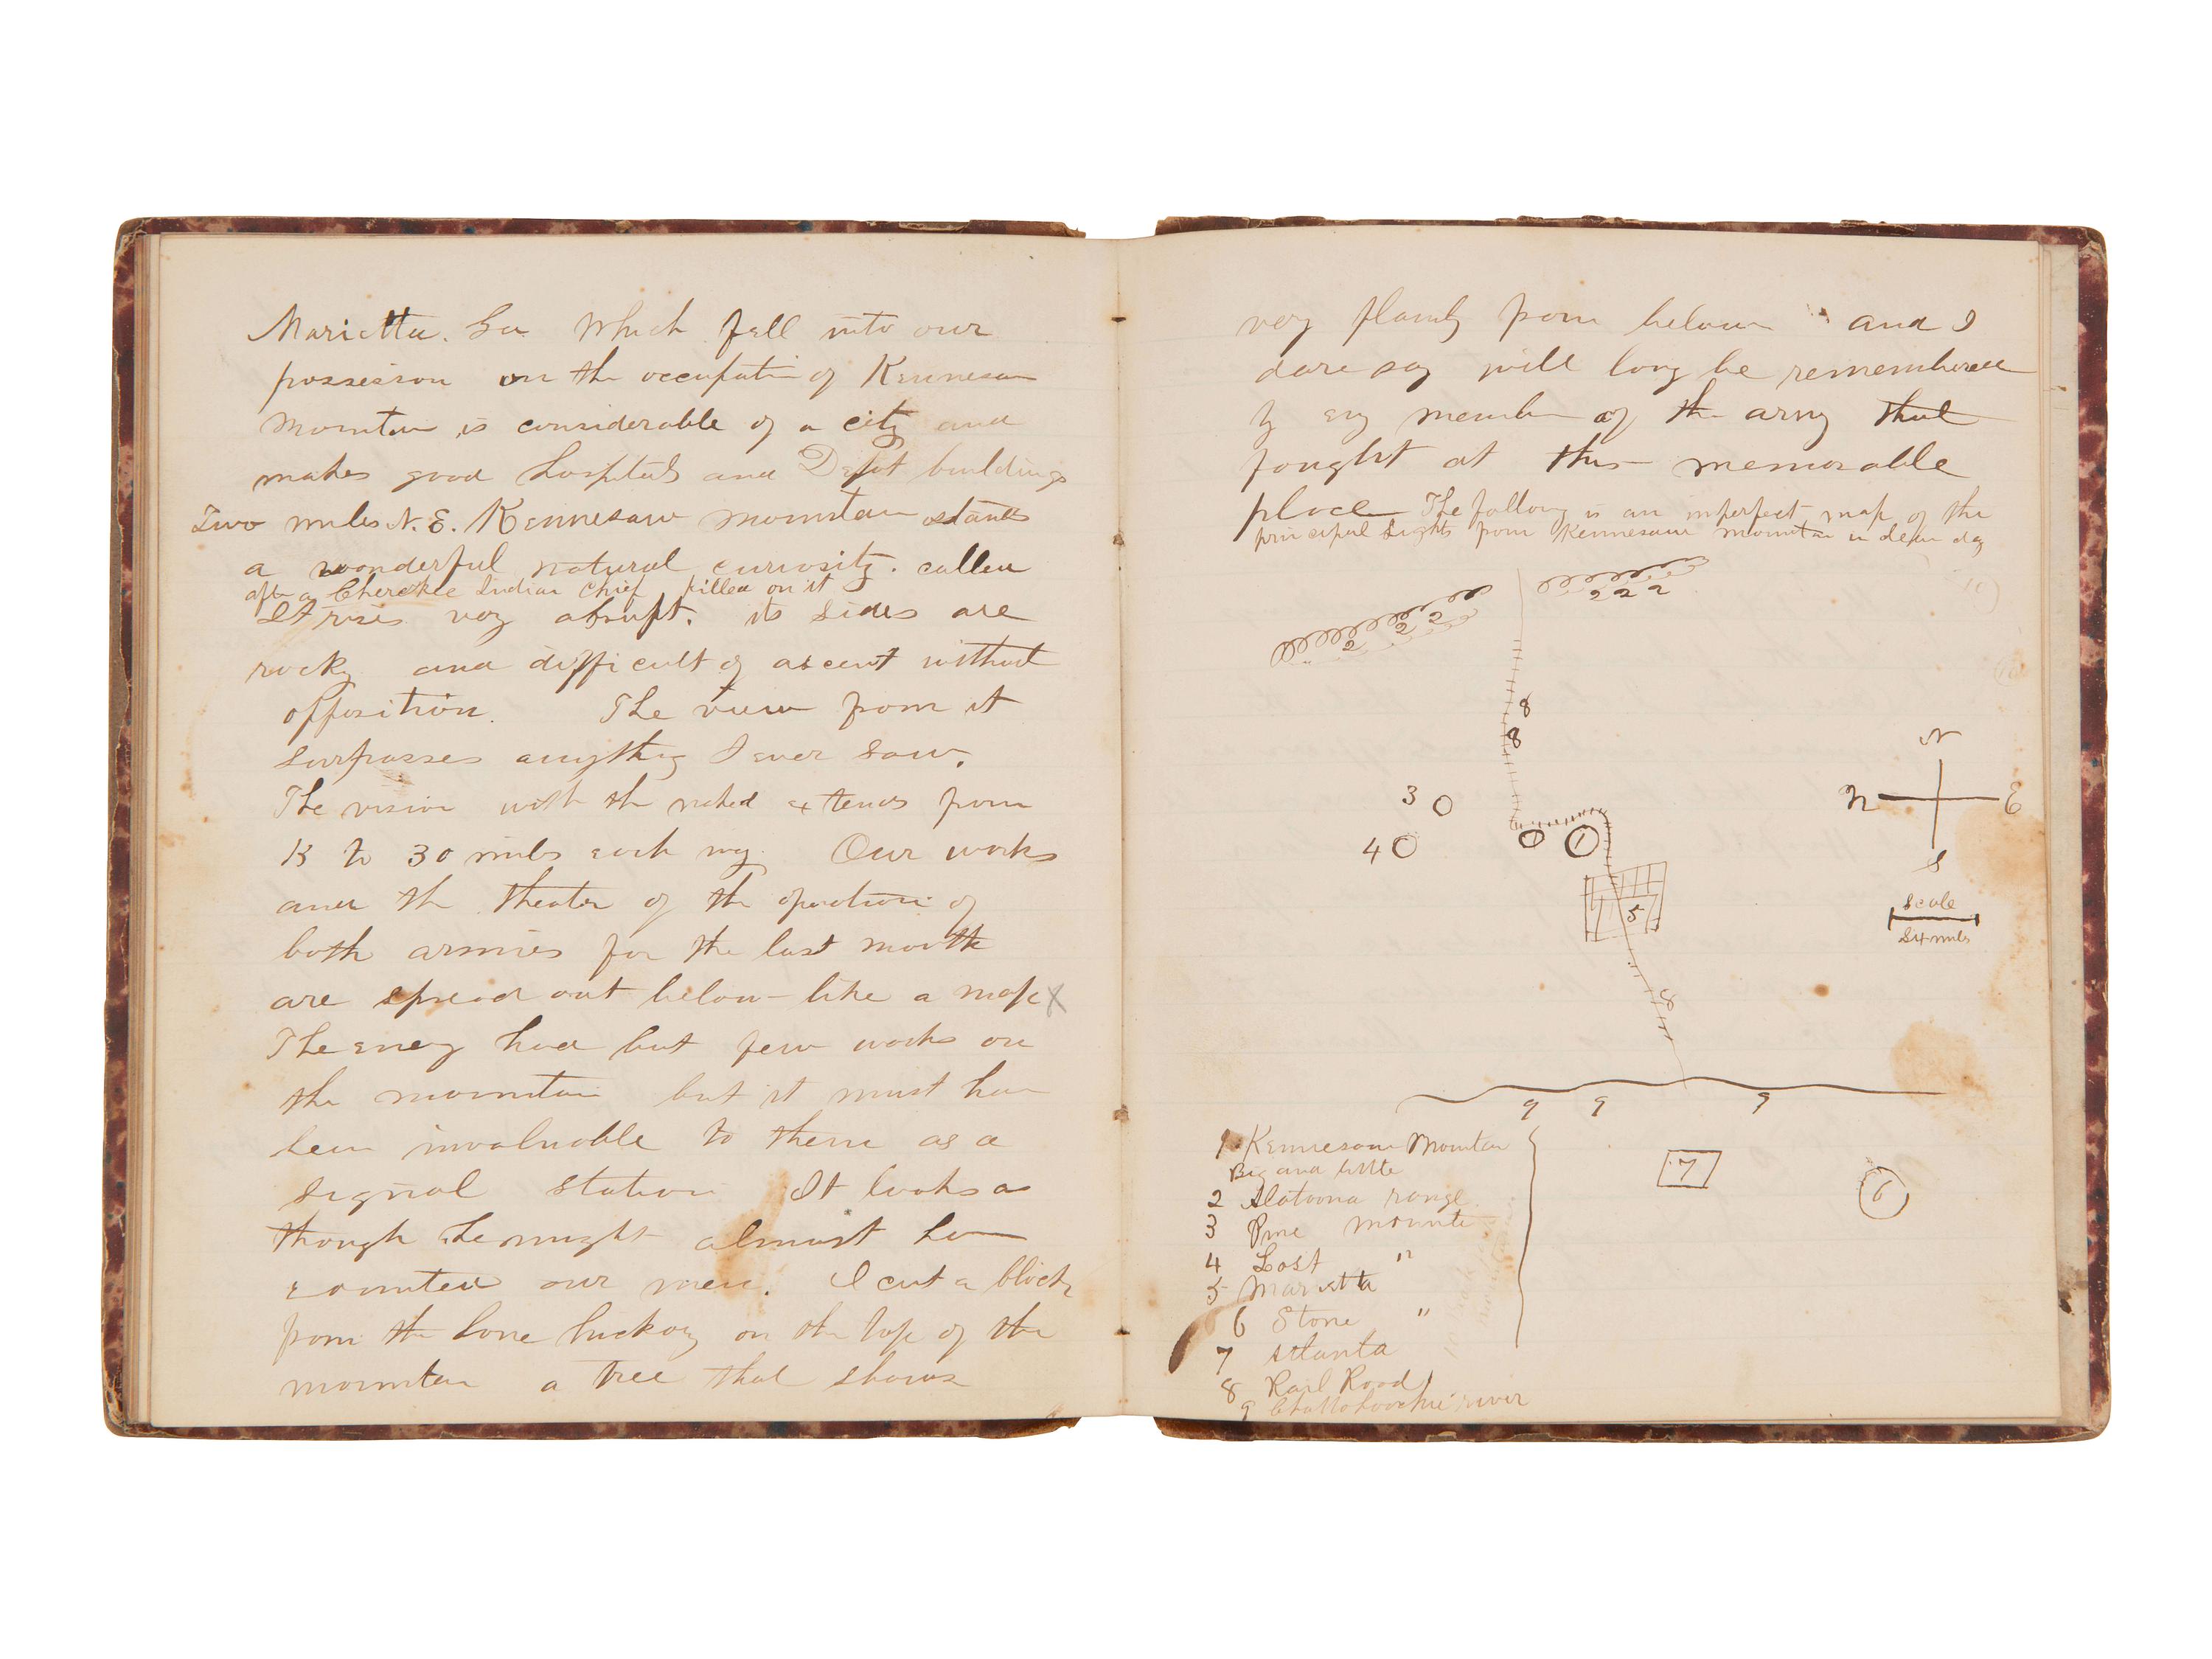 Marietta. Ga which fell into our
possession on the occupation of Kennesaw
Mountain is considerable of a city and
makes good hospitals and Depot buildings
Two miles N. E. Kennesaw mountain stands
a wonderful natural curiosity. called
aft a Cherokee Indian Chief killed on it
It rises very abrupt. its sides are
rocky and difficult of ascent without
opposition. The view from it
surpasses anything I ever saw.
The vision with the naked extends from
15 to 30 miles each way. Our works
and the theater of the operations of
both armies for the last month
are spread out below like a map x
The enemy had but few works on
the mountain but it must have
been invaluable to them as a
signal station It looks as
though he might almost have
counted our men. I cut a block
from the lone hickory on the top of the
mountain a tree that shows
very plainly from below and I
dare say will long be remembered
by evy member of the army that
fought at this memorable
place The following is an imperfect map of the
principal sights from Kennesaw mountain in clear day
2 2 2
2 2 2
8
8
3
4
1
N
E
S
Scale
5
8
9 9 9
7
6
1 Kennesaw Mountain
Big and little
2 Alatoona range
3 Pine mounta
4 Lost "
5 Marietta
6 Stone "
7 Atlanta
8 Rail Road
9 Chattahoochie river